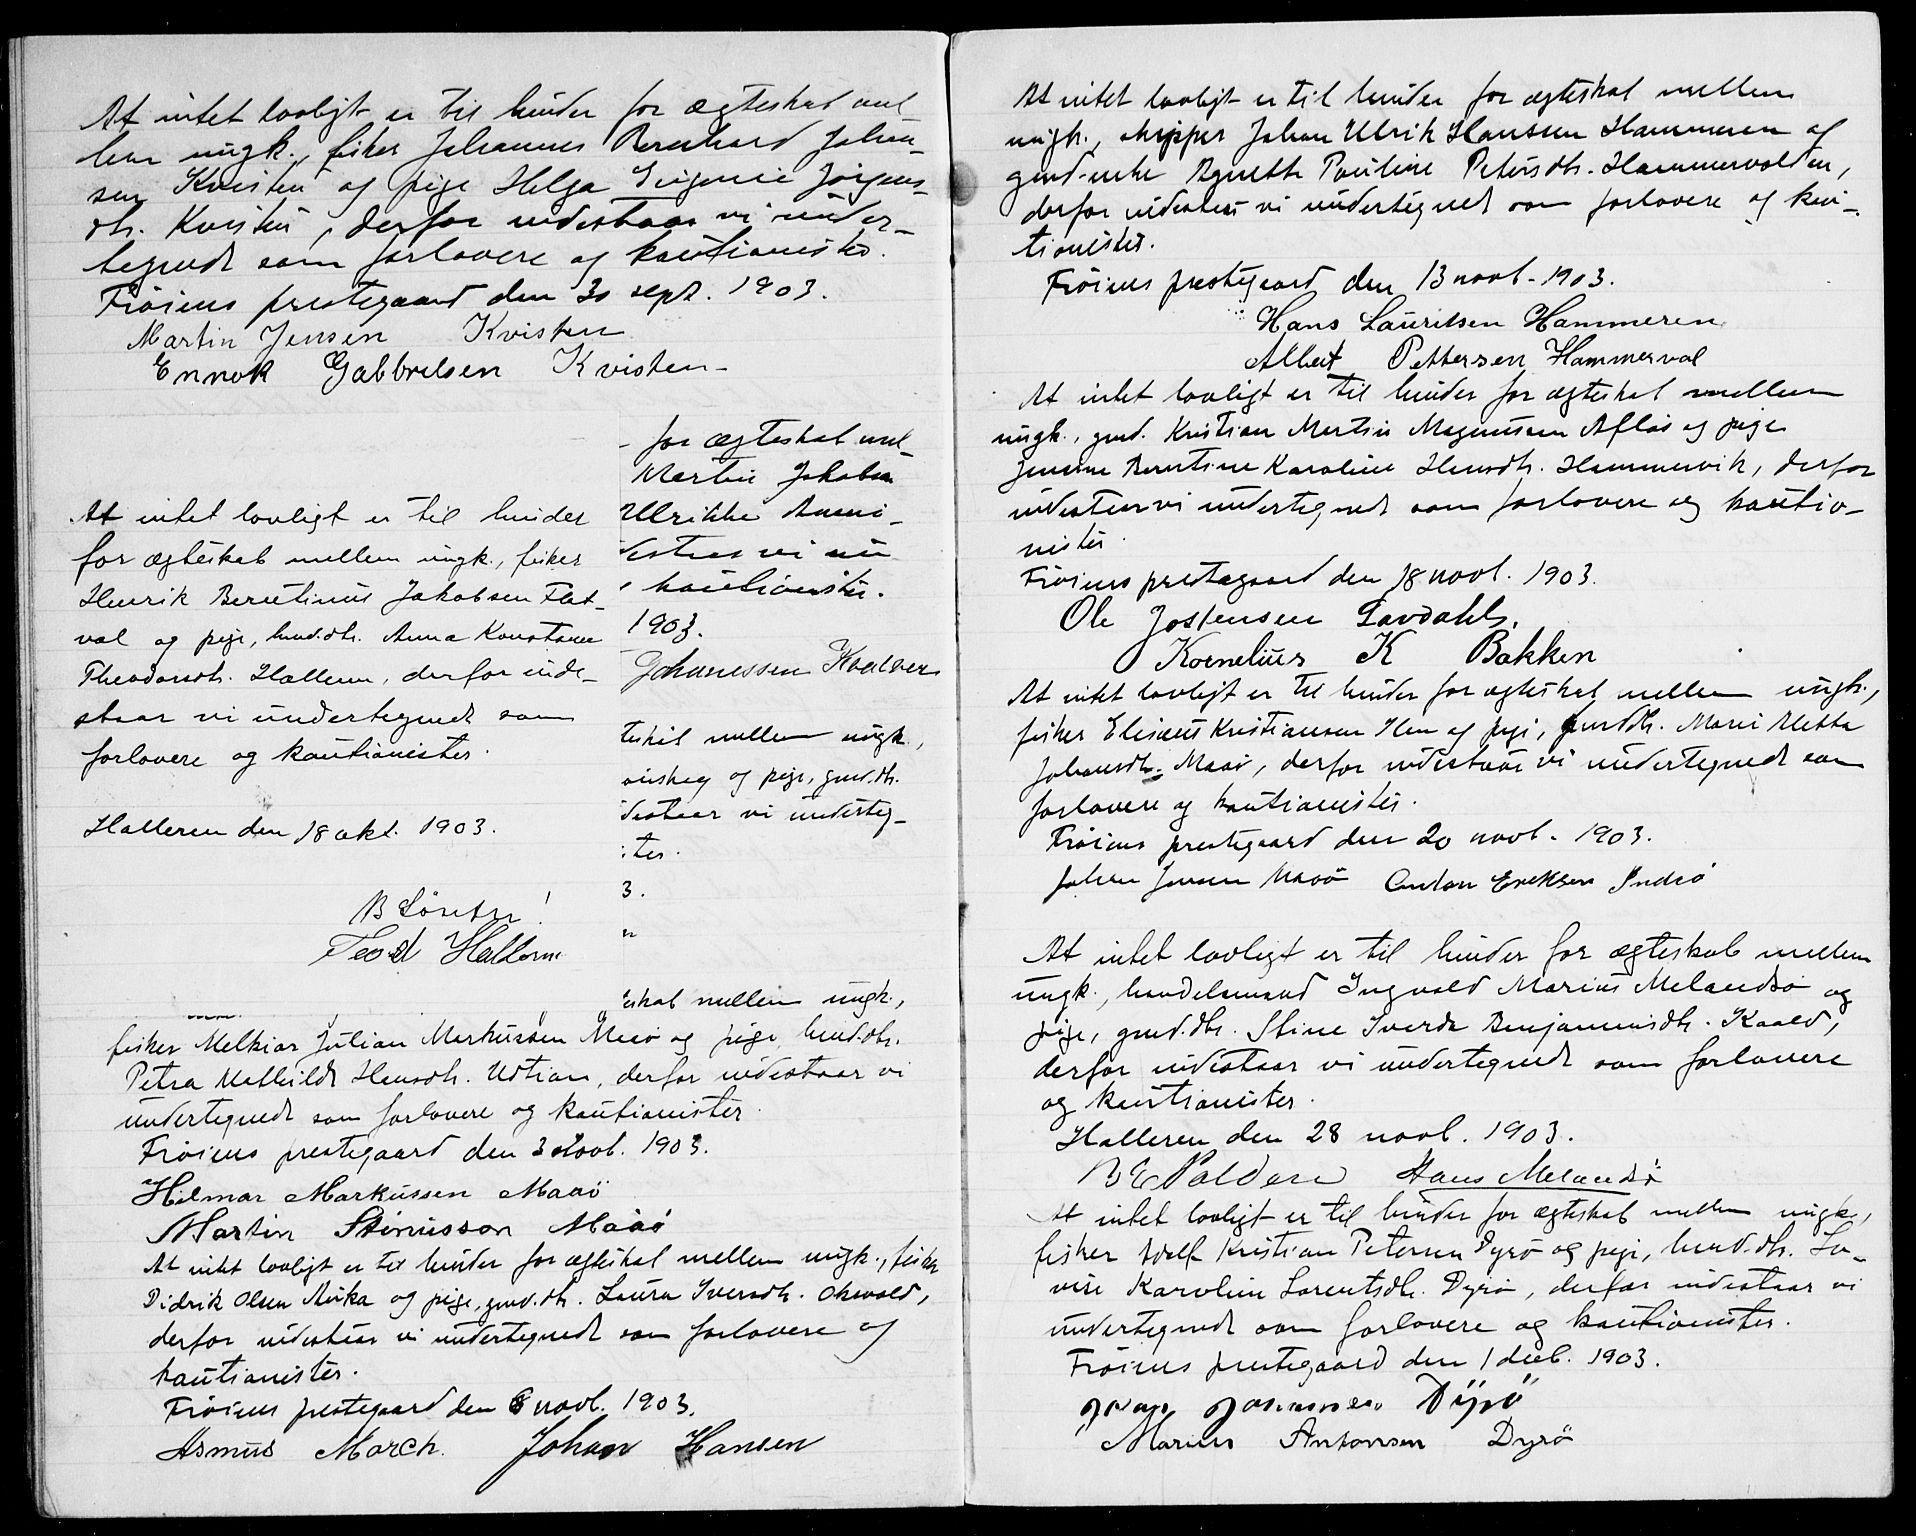 At intet lovligt er til hinder for ægteskab mel
lem ungk., fisker Johannes Bernhard Johan
sen Kvisten og pige Helga Eugenie Jörgens
dtr. Kvisten, derfor indestaar vi under-
tegnede som forlovere og kautionister.
Fröiens prestegaard den 30 sept. 1903.
Martin Jensen Kvisten
Ennok Gabbrelsen Kvisten
for ægteskab mel
Martin Jakobsen
Ulrikke
destaar vi un
kautionister.
1903.
Johanessen Kvalver
At intet lovligt er til hinder
for ægteskab mellem ungk., fisker
Henrik Berntinus Jakobsen Flat-
val og pige, husd.dtr. Anna Konstanse
Theodorsdtr. Halleren, derfor inde-
staar vi undertegnede som
forlovere og kautionister.
Halleren den 18 okt. 1903.
teskab mellem ungk.,
og pige, gmd.dtr.
destaar vi underteg-
ister.
3.
n
B Sörether!
Teod Halleren
eskab mellem ungk.,
fisker Melkior Julian Markussen Maaö og pige, husd.dtr.
Petra Mathilde Hansdtr. Udtian, derfor indestaar vi
undertegnede som forlovere og kautionister.
Fröiens prestegaard den 3 novb. 1903.
Hilmar Markussen Maaö
Martin Stinusson Maaö
At intet lovligt er til hinder for ægteskab mellem ungk., fisker
Didrik Olsen Avika og pige, gmd.dtr. Laura Iversdtr. Okvald,
derfor indestaar vi undertegnede som forlovere og
kautionister.
Fröiens prestegaard den 6 novb. 1903.
Asmus March. Johan Hansen
At intet lovligt er til hinder for ægteskab mellem
ungk., skipper Johan Ulrik Hansen Hammeren og
gmd-enke Agnette Pauline Petersdtr. Hammervolden,
derfor indestaar vi undertegnede som forlovere og kau-
tionister.
Fröiens prestegaard den 13 novb. 1903.
Hans Lauritsen Hammeren
Albert Pettersen Hammerval
At intet lovligt er til hinder for ægteskab mellem
ungk., gmd. Kristian Martin Magnussen Aflös og pige
Jensine Berntine Karoline Hansdtr. Hammervik, derfor
indestaar vi undertegnede som forlovere og kautio-
nister.
Fröiens prestegaard den 18 novb. 1903.
Ole Jostensen Lavdahl.
Kornelius K Bakken
At intet lovligt er til hinder for ægteskab mellem ungk.,
fisker Eliseus Kristiansen Hen og pige, gmd.dtr. Marie Metta
Johansdtr. Maaö, derfor indestaar vi undertegnede som
forlovere og kautionister.
Fröiens prestegaard den 20 novb. 1903.
Johan Jensen Maaö Anton Eriksen Indsö
At intet lovligt er til hinder for ægteskab mellem
ungk., handelsmand Ingvald Marius Melandsö og
pige, gmd.dtr. Stine Sverda Benjaminsdtr. Kaald,
derfor indestaar vi undertegnede som forlovere
og kautionister.
Halleren den 28 novb. 1903.
B E Paldere Hans Melandsö
At intet lovligt er til hinder for ægteskab mellem ungk.,
fisker Adolf Kristian Petersen Dyrö og pige, husd.dtr. Lo-
vise Karoline Lorentsdtr. Dyrö, derfor indestaar vi
undertegnede som forlovere og kautionister.
Fröiens prestegaard den 1 decb. 1903.
Johan Johannesen Dyrö
Marius Antonsen Dyrö